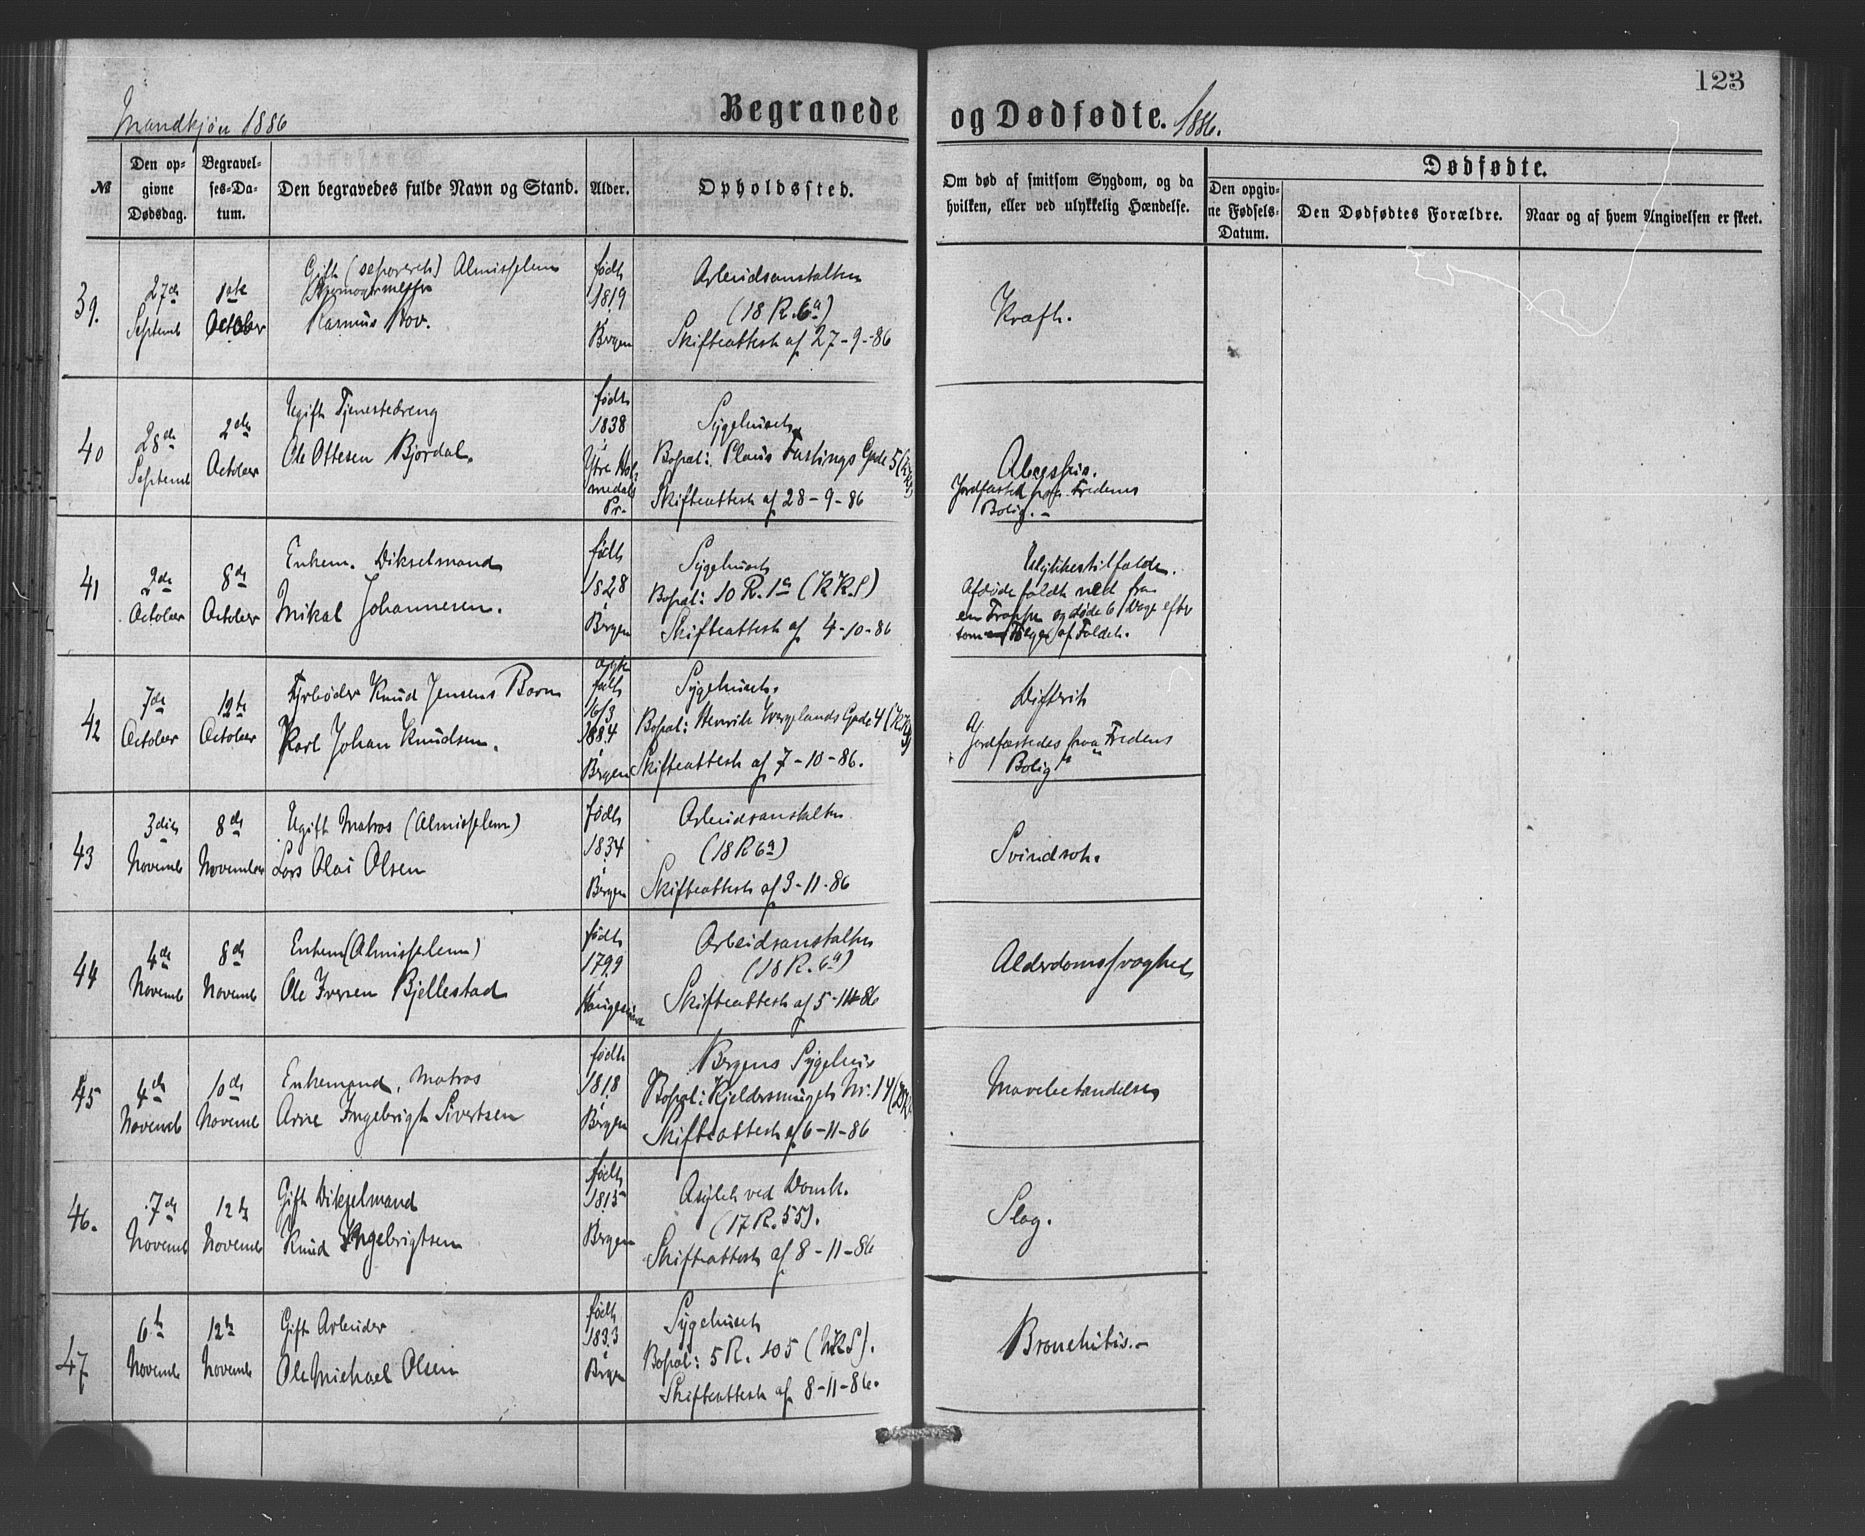 123
Mandkjøn 1886
Begravede og Dødfødte. 1886.
№
Den opgivne Dødsdag.
Begravelses-Datum.
Den begravedes fulde Navn og Stand.
Alder.
Opholdssted.
Om død af smitsom Sygdom, og da hvilken, eller ved ulykkelig Hændelse.
Dødfødte.
Den opgivne Fødsels-Datum.
Den Dødfødtes Forældre.
Naar og af hvem Angivelsen er skeet.
39.
27de Septemb
1ste October
Gift (separeret) Almisselem
Rasmus Bov.
født 1819 i Bergen
Arbeidsanstalten
(18 R. 6a)
Skifteattest af 27-9-86
Kræft.
40
28de Septemb
2den October
Ugift Tjenestedreng
Ole Ottesen Bjordal.
født 1838 i Ytre Holmedals Pr.
Sygehuset.
Bopæl: Claus Fastings Gade 5
Skifteattest af 28-9-86
Jordfæstet fra Fredens
Bolig.-
41
2den October
8de October
Enkem. Dikselmand
Mikal Johannesen.
født 1828 i Bergen
Sygehuset
Bopæl: 10 R. 1a (KKS)
Skifteattest af 4-10-86
Ulykkestilfælde.
Afdøde faldt ned fra
en Trappe og døde 6 Dage efter
som Følge af Faldet.
42
7de October
12te October
Fyrbøder Knud Jensens Barn
Karl Johan Knudsen.
født 16/3 1884 i Bergen
Sygehuset.
Bopæl: Henrik Wergelands Gade 4
Skifteattest af 7-10-86.
Difterit
Jordfæstedes fra Fredens
Bolig
43
3die Novemb
8de November
Ugift Matros (Almisselem)
Lars Olai Olsen
født 1834 i Bergen
Arbeidsanstalten
(18 R 6a)
Skifteattest af 3-11-86
Svindsot.
44
4de Novemb
8de Novemb
Enkem (Almisselem)
Ole Iversen Bjellestad
født 1799 i Haugesund
Arbeidsanstalten
(18 R. 6a)
Skifteattest af 5-11-86
Alderdomssvaghed
45
4de Novemb
10de Novemb
Enkemand, Matros
Arne Ingebrigt Sivertsen
født 1818 i Bergen
Bergens Sygehus
Bopæl: Kjeldersmuget Nr. 14
Skifteattest af 6-11-86
Mavebetændelse
46.
7de Novemb
12te Novemb
Gift Dikselmand
Knud Ingebrigtsen
født 1815 i Bergen
Asylet ved Domk.
(17 R. 55).
Skifteattest af 8-11-86
Slag.
47
6te Novemb
12te Novemb
Gift Arbeider
Ole Michael Olsen
født 1833 i Bergen
Sygehuset
Bopæl: 5 R. 105 (NKS).
Skifteattest af 8-11-86.
Bronchitis.-